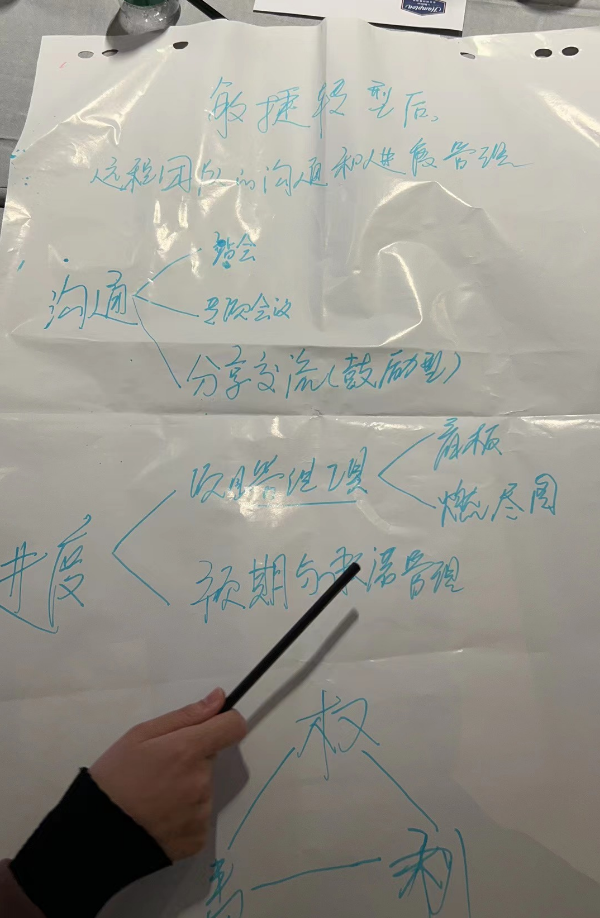 敏捷转型后,
远程团队的沟通和进度管理
站会
沟通
专项会议
分享交流(鼓励型)
看板
项目管理工具
燃尽图
进度
预期与承诺管理
权
利
Hampton